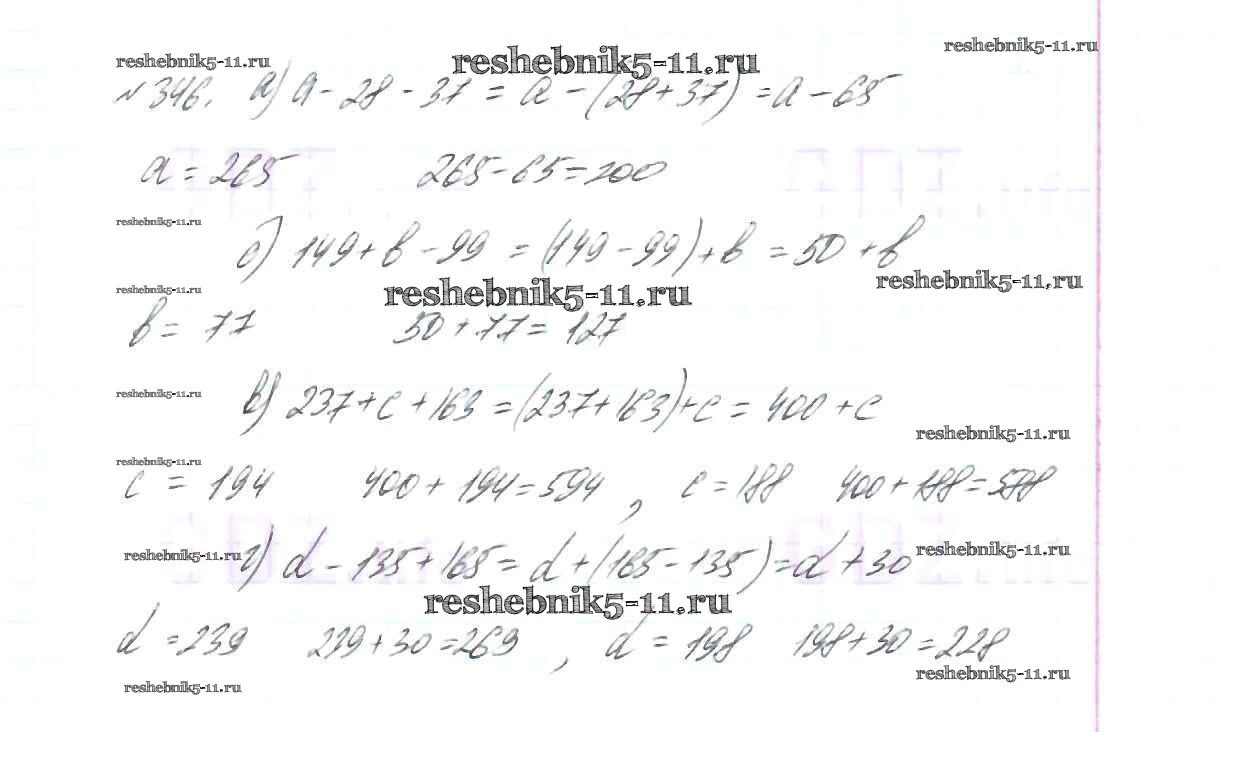 reshebnik5-11.ru reshebnik5-11.ru reshebnik5-11.ru
№ 346. а) a - 28 - 37 = a - (28 + 37) = a - 65
a = 265 265 - 65 = 200
reshebnik5-11.ru
б) 149 + b - 99 = (149 - 99) + b = 50 + b
reshebnik5-11.ru reshebnik5-11.ru reshebnik5-11.ru
b = 77 50 + 77 = 127
reshebnik5-11.ru
в) 237 + c + 163 = (237 + 163) + c = 400 + c
reshebnik5-11.ru
reshebnik5-11.ru
c = 194 400 + 194 = 594 , c = 188 400 + 188 =
reshebnik5-11.ru reshebnik5-11.ru
г) d - 135 + 165 = d + (165 - 135) = d + 30
reshebnik5-11.ru
d = 239 239 + 30 = 269 , d = 198 198 + 30 = 228
reshebnik5-11.ru
reshebnik5-11.ru